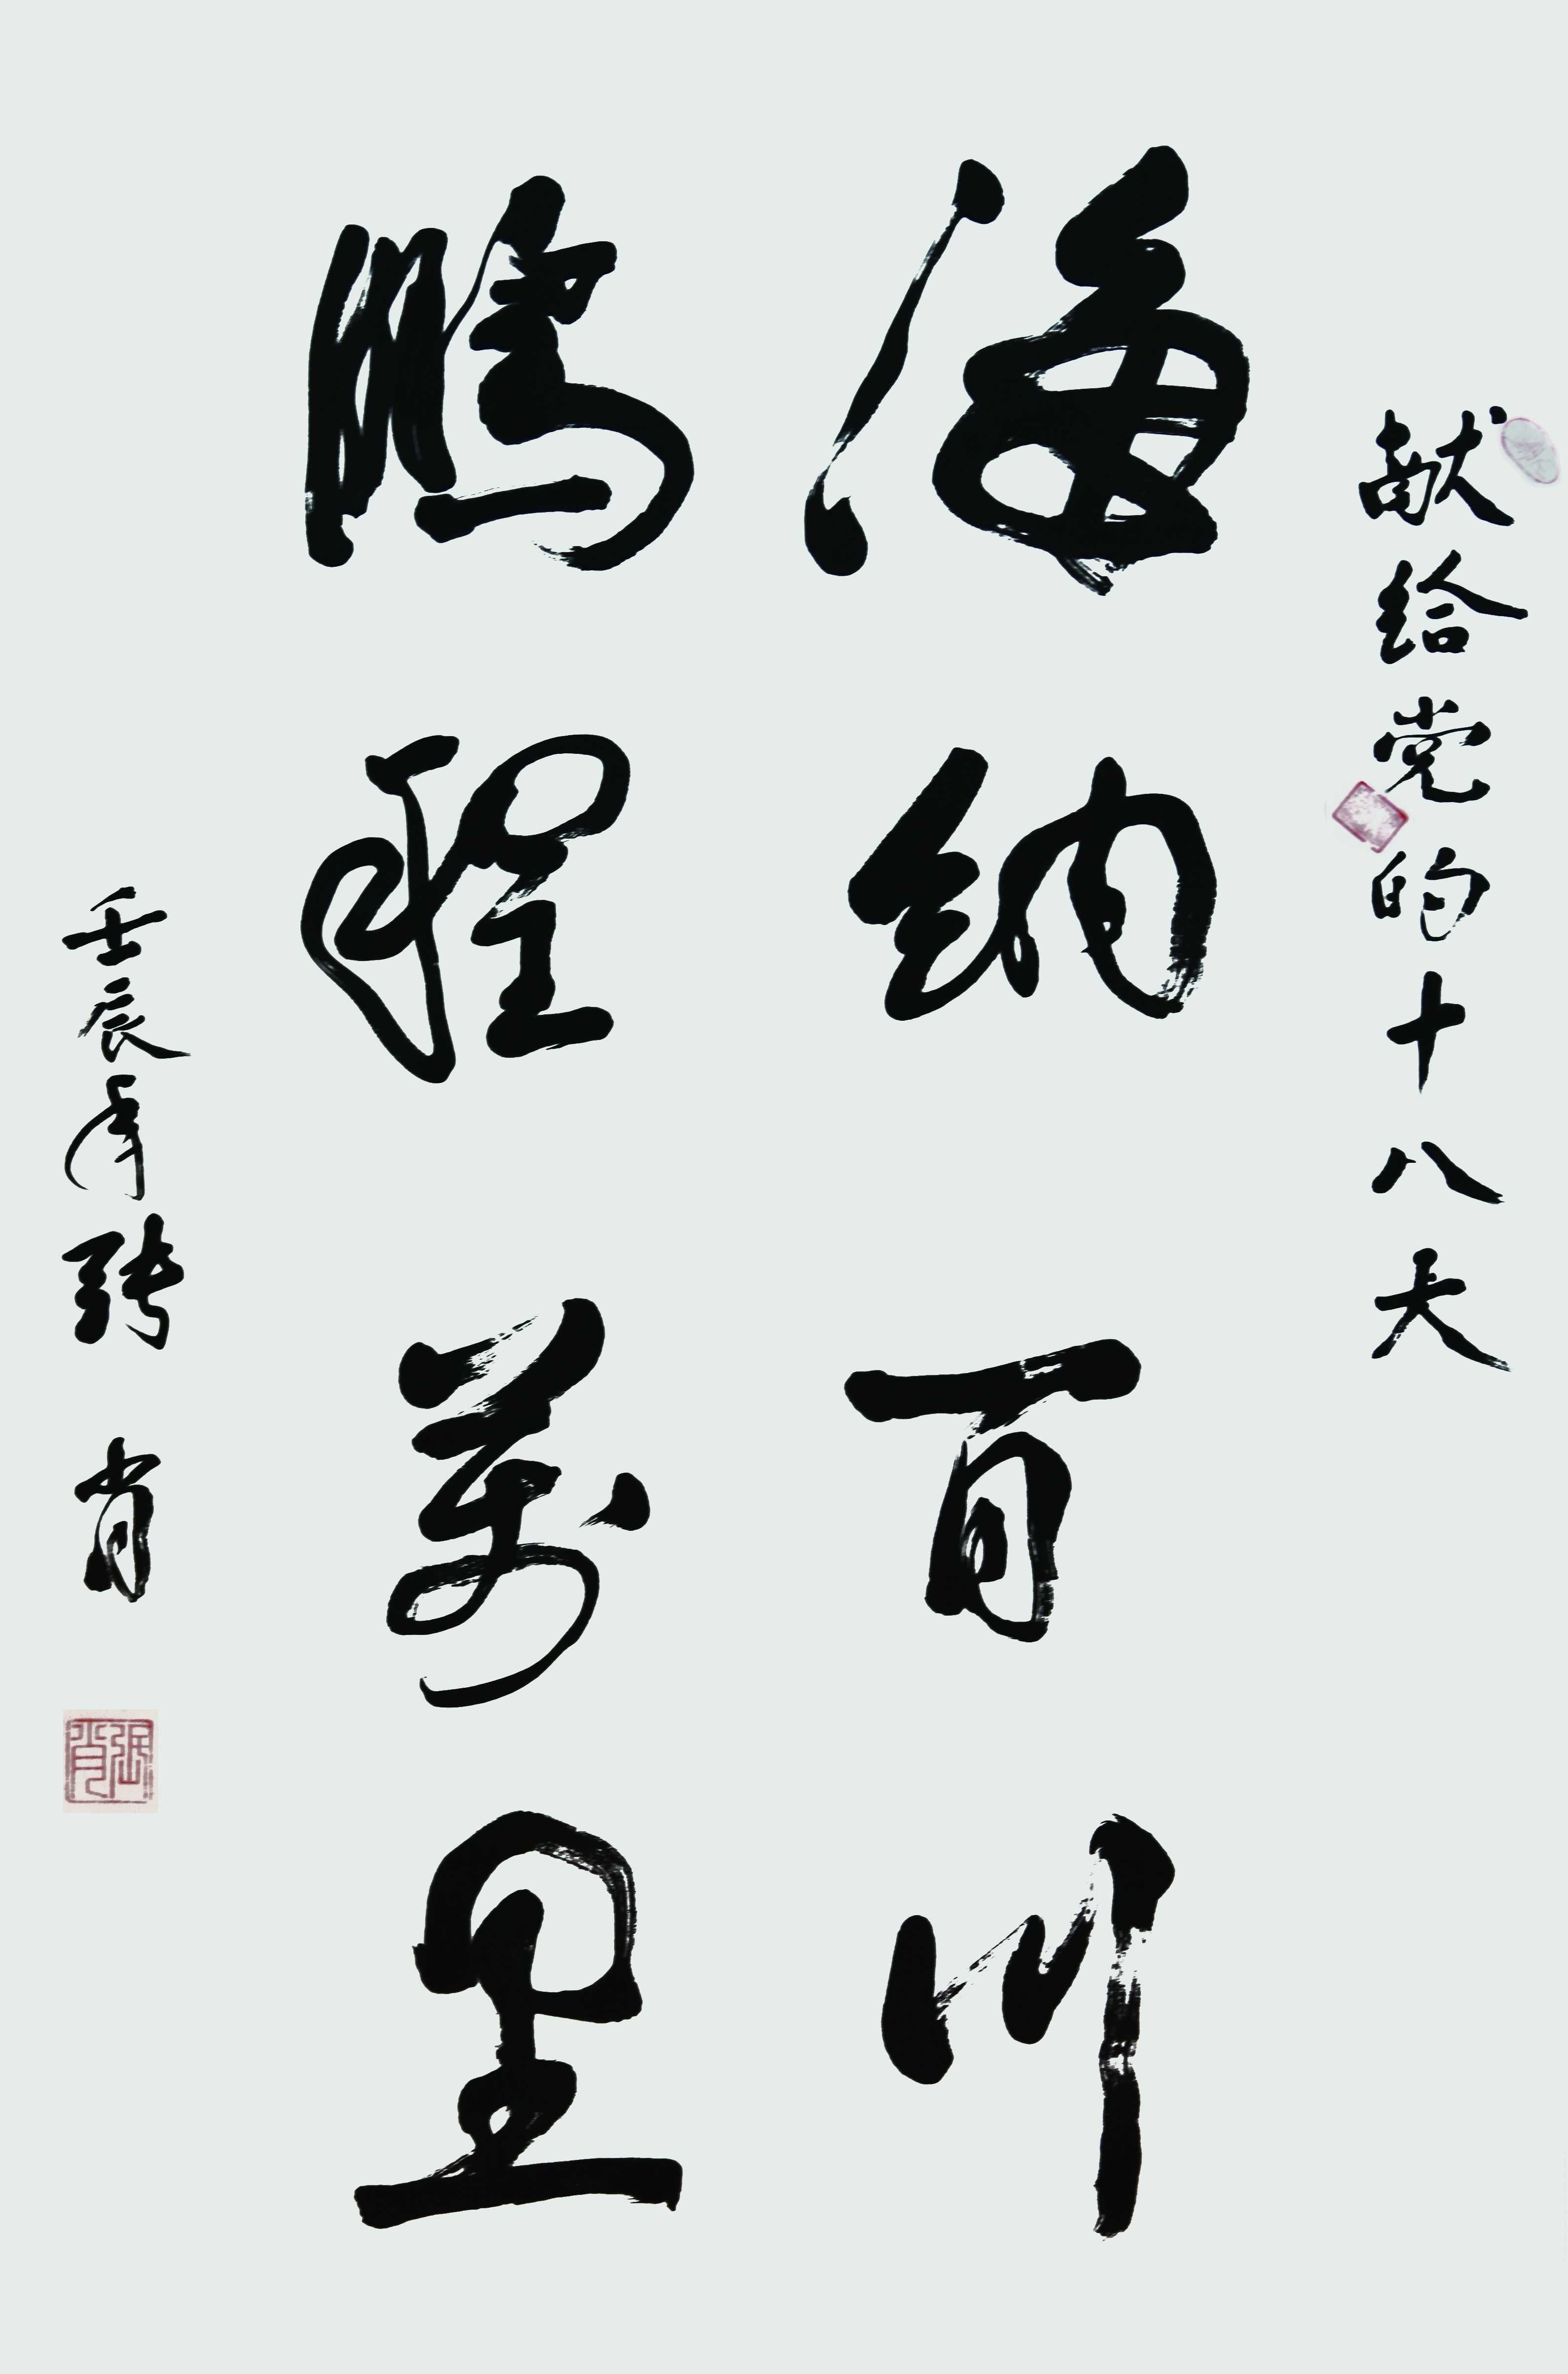 献给党的十八大
海纳百川
鹏程萬里
壬辰年张肖
張肖